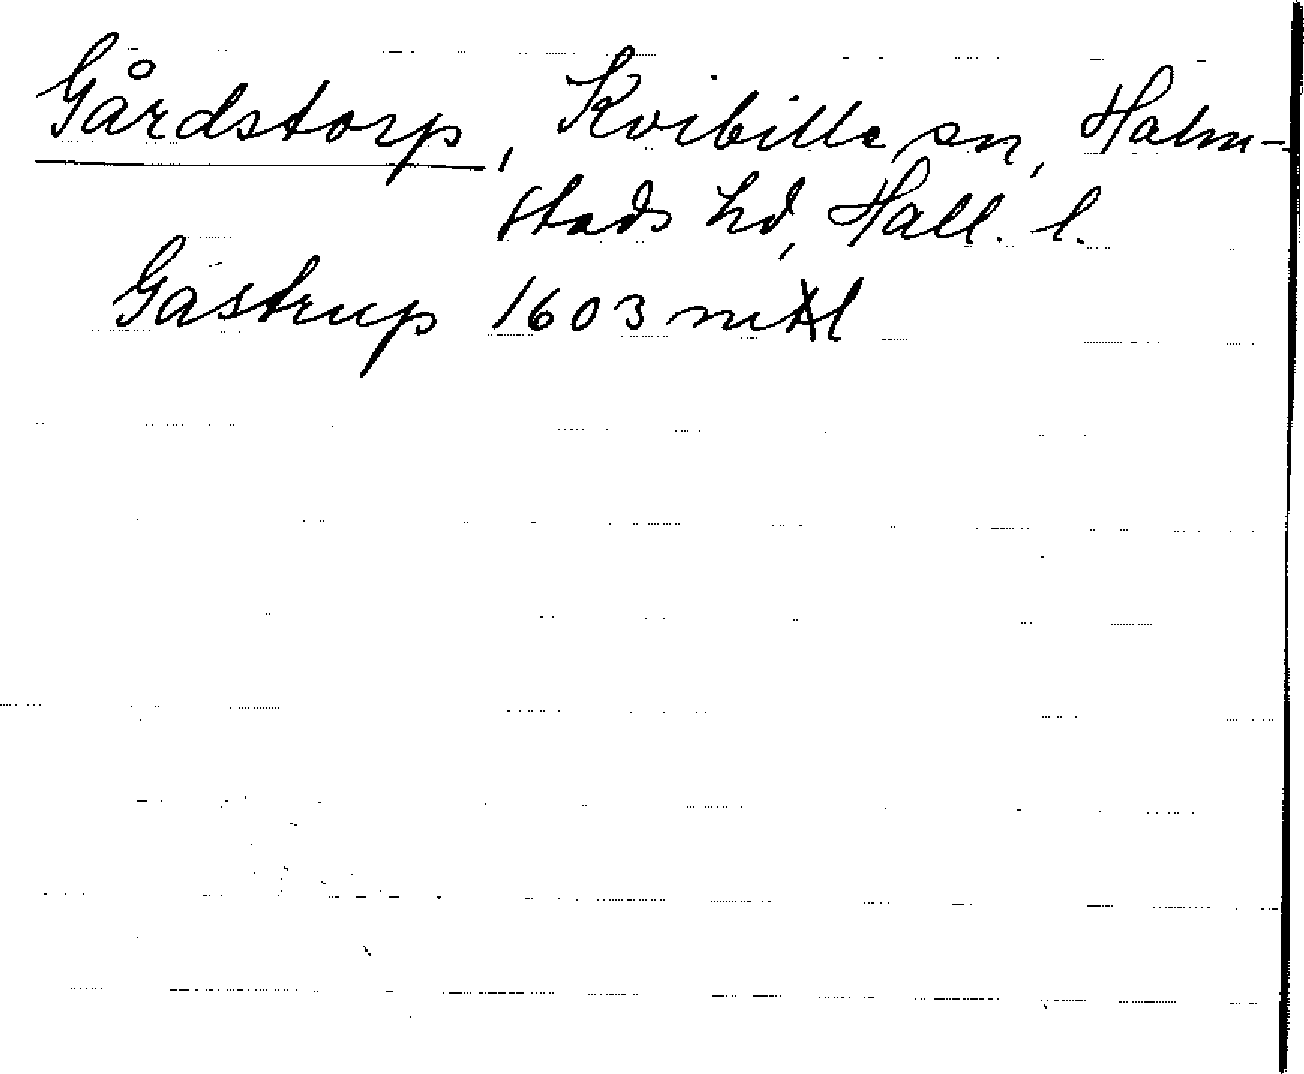 Gårdstorp, Kvibille sn, Halm-
stads hd, Hall. l.
Gastrup 1603 mtl